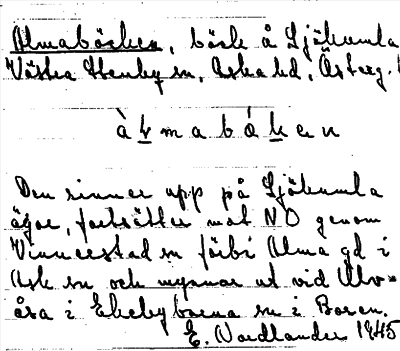 Almabäcken, bäck å Sjökumla
Västra Stenby sn, Aska hd, Österg.
à k m a b á k e n
Den rinner upp på Sjökumla
ägor, fortsätter mot NO genom
Vinnerstad sn förbi Alma gd i
Ask sn och mynnar ut vid Ulv=
åsa i Ekebyborna sn i Boren.
E. Nordlander 1945